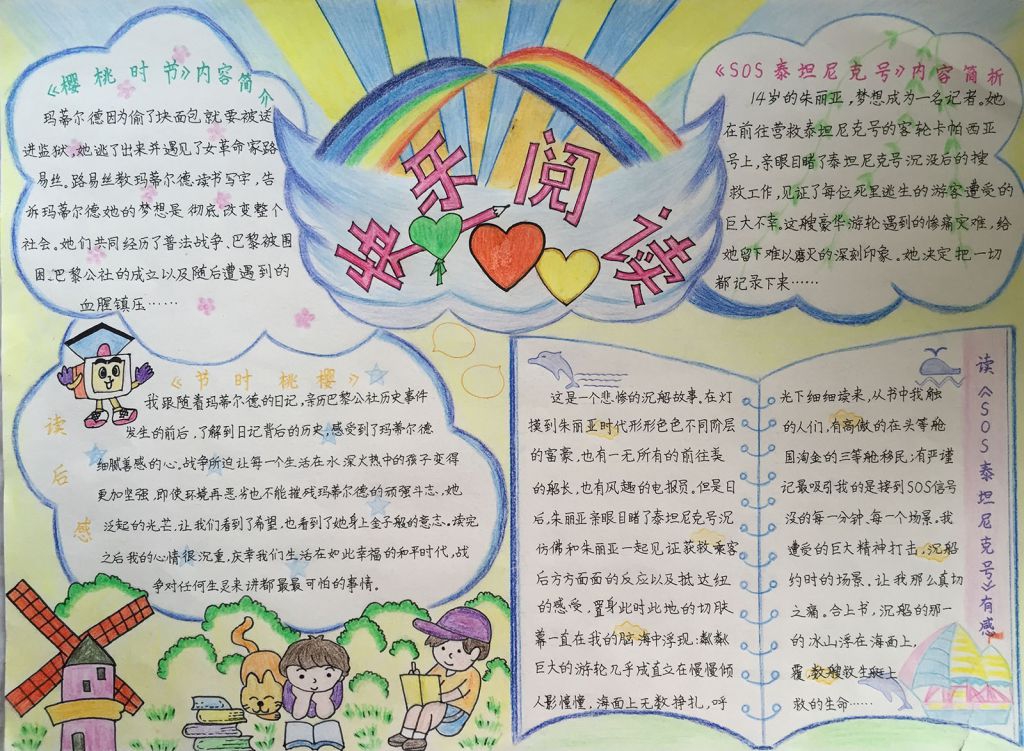 快乐阅读
《樱桃时节》内容简介
玛蒂尔德因为偷了块面包就要被送
进监狱,她逃了出来并遇见了女革命家路
易丝。路易丝教玛蒂尔德读书写字,告
诉玛蒂尔德她的梦想是彻底改变整个
社会。她们共同经历了普法战争、巴黎被围
困、巴黎公社的成立以及随后遭遇到的
血腥镇压……
《SOS泰坦尼克号》内容简析
14岁的朱丽亚,梦想成为一名记者。她
在前往营救泰坦尼克号的客轮卡帕西亚
号上,亲眼目睹了泰坦尼克号沉没后的搜
救工作,见证了每位死里逃生的游客遭受的
巨大不幸。这艘豪华游轮遇到的惨痛灾难,给
她留下难以磨灭的深刻印象。她决定把一切
都记录下来……
《节时桃樱》
读后感
我跟随着玛蒂尔德的日记,亲历巴黎公社历史事件
发生的前后,了解到日记背后的历史,感受到了玛蒂尔德
细腻善感的心。战争所迫让每一个生活在水深火热中的孩子变得
更加坚强,即使环境再恶劣也不能摧残玛蒂尔德的顽强斗志,她
泛起的光芒,让我们看到了希望,也看到了她身上金子般的意志。读完
之后我的心情很沉重,庆幸我们生活在如此幸福的和平时代,战
争对任何生灵来讲都最最可怕的事情。
读《SOS泰坦尼克号》有感
这是一个悲惨的沉船故事,在灯光下细细读来,从书中我触
摸到朱丽亚时代形形色色不同阶层的人们,有高傲的在头等舱
的富豪,也有一无所有的前往美国淘金的三等舱移民;有严谨
的船长,也有风趣的电报员。但是日记最吸引我的是接到SOS信号
后,朱丽亚亲眼目睹了泰坦尼克号沉没的每一分钟、每一个场景。我
仿佛和朱丽亚一起见证获救乘客遭受的巨大精神打击,沉船
后方方面面的反应以及抵达纽约时的场景。让我那么真切
的感受,置身此时此地的切肤之痛。合上书,沉船的那一
幕一直在我的脑海中浮现:粼粼的冰山浮在海面上,
巨大的游轮几乎成直立在慢慢倾覆,数艘救生艇上
人影憧憧,海面上无数挣扎,呼救的生命……